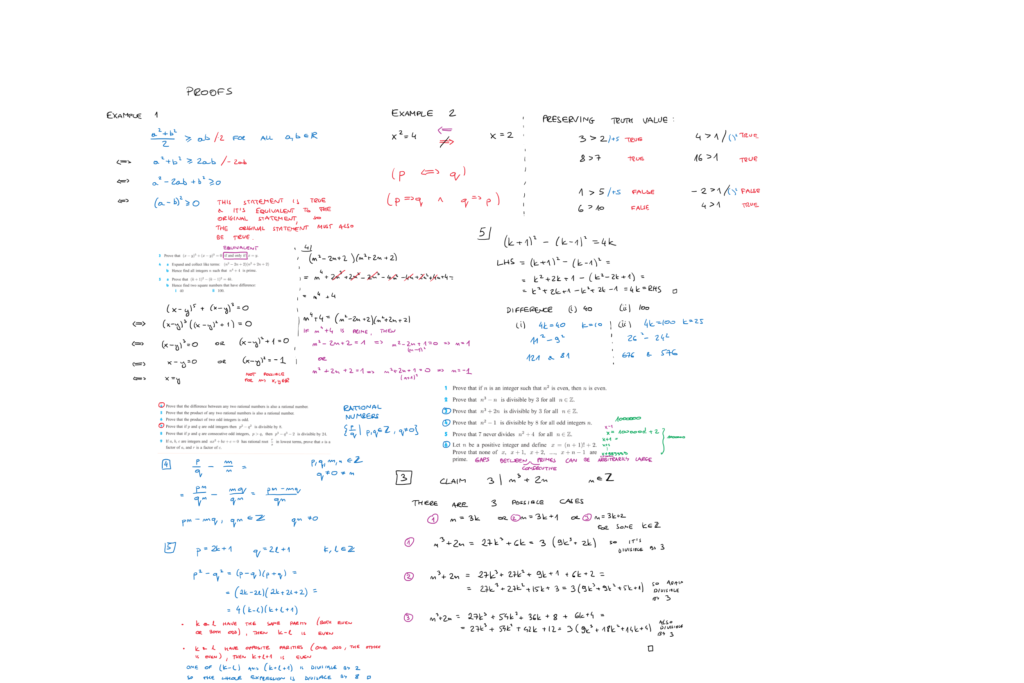 PROOFS
EXAMPLE 1
a²+b²/2 ≥ ab /·2 FOR ALL a,b∈R
<=> a²+b² ≥ 2ab /-2ab
<=> a²-2ab+b² ≥ 0
<=> (a-b)² ≥ 0
THIS STATEMENT IS TRUE
& IT'S EQUIVALENT TO THE
ORIGINAL STATEMENT, SO
THE ORIGINAL STATEMENT MUST ALSO
BE TRUE.
EXAMPLE 2
x²=4 <= ≠> x=2
(p <=> q)
(p=>q ∧ q=>p)
PRESERVING TRUTH VALUE:
3>2 /+5 TRUE
8>7 TRUE
4>1 /()² TRUE
16>1 TRUE
1>5 /+5 FALSE
6>10 FALSE
-2>1 /()² FALSE
4>1 TRUE
EQUIVALENT
3 Prove that (x − y)⁵ + (x − y)³ = 0 if and only if x = y.
4 a Expand and collect like terms: (n² − 2n + 2)(n² + 2n + 2).
b Hence find all integers n such that n⁴ + 4 is prime.
5 a Prove that (k + 1)² − (k − 1)² = 4k.
b Hence find two square numbers that have difference
i 40 ii 100
(x-y)⁵ + (x-y)³ = 0
<=> (x-y)³((x-y)²+1) = 0
<=> (x-y)³=0 OR (x-y)²+1=0
<=> x-y=0 OR (x-y)²=-1
<=> x=y
NOT POSSIBLE
FOR ANY x,y∈R
4|
(n²-2n+2)(n²+2n+2)
= n⁴+2n³+2n²-2n³-4n²-4n+2n²+4n+4=
= n⁴+4
n⁴+4=(n²-2n+2)(n²+2n+2)
IF n⁴+4 IS PRIME, THEN
n²-2n+2=1 => n²-2n+1=0 => n=1
(n-1)²
OR
n²+2n+2=1 => n²+2n+1=0 => n=-1
(n+1)²
5|
(k+1)² - (k-1)² = 4k
LHS = (k+1)² - (k-1)² =
= k²+2k+1 - (k²-2k+1) =
= k²+2k+1-k²+2k-1 = 4k = RHS □
DIFFERENCE (i) 40 (ii) 100
(i) 4k=40 k=10
11² - 9²
121 & 81
(ii) 4k=100 k=25
26² - 24²
676 & 576
Prove that the difference between any two rational numbers is also a rational number.
Prove that the product of any two rational numbers is also a rational number.
Prove that the product of two odd integers is odd.
Prove that if p and q are odd integers then p² − q² is divisible by 8.
RATIONAL
NUMBERS
{p/q | p,q∈Z, q≠0}
4
p/q - m/n = p,q,m,n∈Z
q≠0≠n
= pn/qn - mq/qn = pn-mq/qn
pn-mq, qn∈Z qn≠0
5
p=2k+1 q=2l+1 k,l∈Z
p²-q² = (p-q)(p+q) =
= (2k-2l)(2k+2l+2) =
= 4(k-l)(k+l+1)
• k & l HAVE THE SAME PARITY (BOTH EVEN
OR BOTH ODD), THEN k-l IS EVEN
• k & l HAVE OPPOSITE PARITIES (ONE ODD, THE OTHER
IS EVEN), THEN k+l+1 IS EVEN
ONE OF (k-l) AND (k+l+1) IS DIVISIBLE BY 2
SO THE WHOLE EXPRESSION IS DIVISIBLE BY 8 □
1 Prove that if n is an integer such that n² is even, then n is even.
2 Prove that n² − n is divisible by 2 for all n ∈ Z.
3 Prove that n³ + 2n is divisible by 3 for all n ∈ Z.
Prove that n² − 1 is divisible by 8 for all odd integers n.
5 Prove that 7 never divides n² + 4 for all n ∈ Z.
6 Let n be a positive integer and define x = (n + 1)! + 2.
Prove that none of x, x + 1, x + 2, ..., x + n − 1 are
prime. GAPS BETWEEN PRIMES CAN BE ARBITRARILY LARGE
CONSECUTIVE
3
CLAIM 3 | n³+2n n∈Z
THERE ARE 3 POSSIBLE CASES
① n=3k OR ② n=3k+1 OR ③ n=3k+2
FOR SOME k∈Z
① n³+2n = 27k³+6k = 3(9k³+2k) SO IT'S
DIVISIBLE BY 3
② n³+2n = 27k³+27k²+9k+1+6k+2 =
= 27k³+27k²+15k+3 = 3(9k³+9k²+5k+1) SO AGAIN
DIVISIBLE
BY 3
③ n³+2n = 27k³+54k²+36k+8+6k+4 =
= 27k³+54k²+42k+12 = 3(9k³+18k²+14k+4) ALSO
DIVISIBLE
BY 3
□